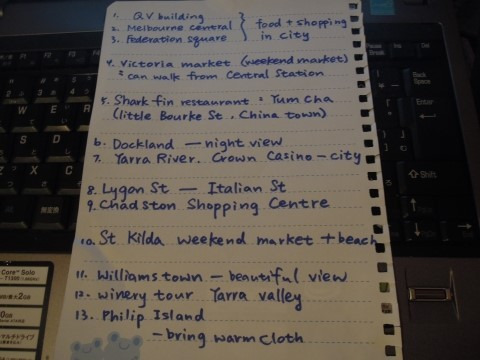 1. QV building
2. Melbourne central
3. Federation square
food + shopping
in city
4. Victoria market (weekend market)
: can walk from Central Station
5. Shark fin restaurant : Yum Cha
(little Bourke St, China town)
6. Dockland — night view
7. Yarra River. Crown Casino — city
8. Lygon St — Italian St
9. Chadston Shopping Centre
10. St Kilda weekend market + beach
11. Williams town — beautiful view
12. winery tour Yarra valley
13. Philip Island
— bring warm cloth
Pause
Break
Back
Space
Enter
Shift
Ctrl
Core™ Solo